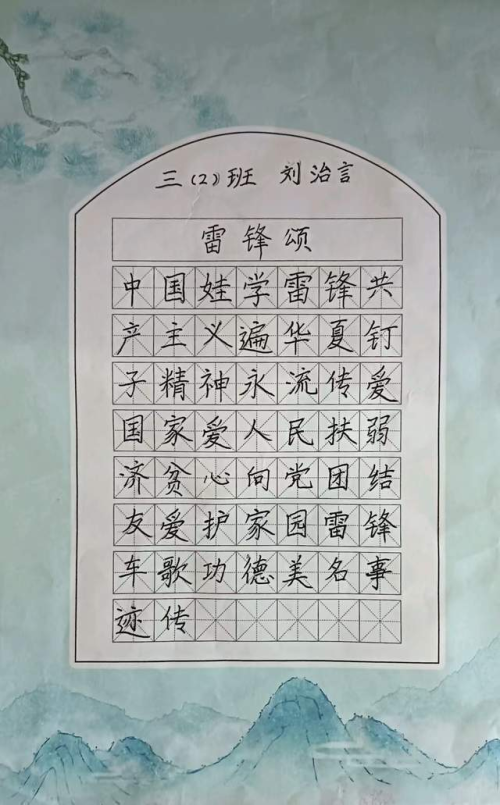 三(2)班 刘治言
雷锋颂
中国娃学雷锋共
产主义遍华夏钉
子精神永流传爱
国家爱人民扶弱
济贫心向党团结
友爱护家园雷锋
车歌功德美名事
迹传